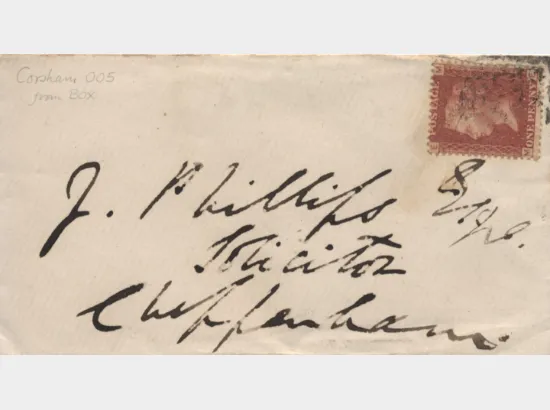 Corsham 005
from Box
POSTAGE
ONE PENNY
J. Phillips Esqre.
Solicitor
Chippenham.